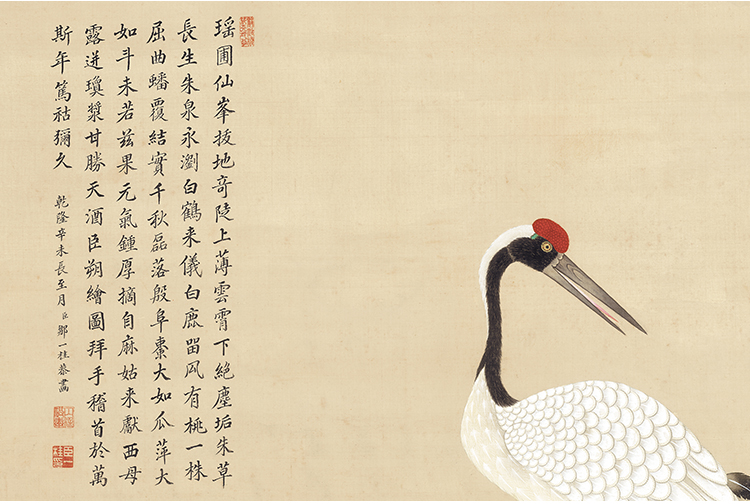 瑶圃仙峯拔地奇陡上薄雲霄下絕塵垢朱草
長生朱泉永瀏白鶴来儀白鹿畱有桃一株
屈曲蟠覆結實千秋磊落殷阜棗大如瓜萍大
如斗未若兹果元氣鍾厚摘自麻姑来獻西母
露迸瓊漿甘勝天酒臣朔繪圖拜手稽首於萬
斯年篤祜彌久
乾隆辛未長至月臣鄒一桂恭畵